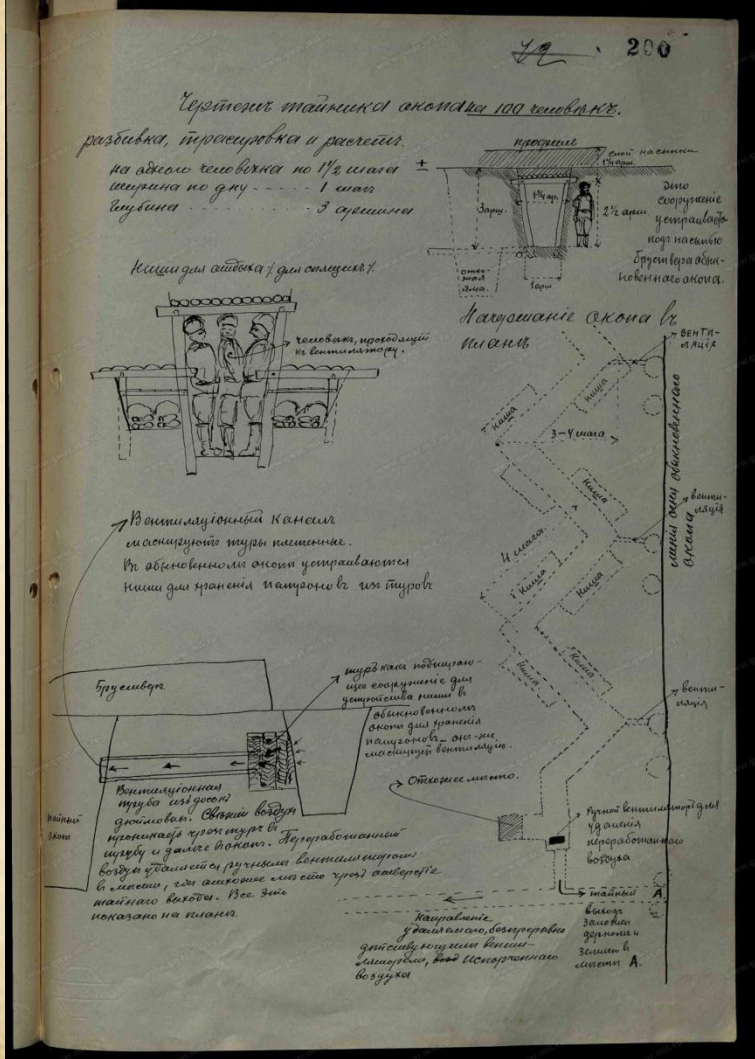 200
Чертежъ тайника окопа на 100 человѣкъ.
разбивка, трасировка и расчетъ.
на одного человѣка по 1½ шага
ширина по дну - - - - - 1 шагъ
Глубина - - - - - 3 аршина
профиль
слой насыпки
1¼ арш.
±
3 арш.
1¾ ар.
2½ арш.
отхо-
жая
яма.
1 арш
Это
сооруженіе
устраивается
подъ насыпью
бруствера обык-
новеннаго окопа.
Ниши для отдыха /для спящихъ/.
человѣкъ, проходящій
къ вентилятору.
Начертаніе окопа въ
планѣ
венти-
ляція
ниша
Ниша
3-4 шага
Ниша
венти-
ляція
4 шага.
Ниша
Ниша
Ниша
Ниша
венти-
ляція
линія окну обыкновеннаго
окопа
Вентиляціонный каналъ
маскируютъ туры плетенные.
Въ обыкновенномъ окопѣ устраиваются
ниши для храненія патроновъ изъ туровъ
Брустверъ
туръ какъ подпираю-
щее сооруженіе для
устройства ниши въ
обыкновенномъ
окопѣ для храненія
патроновъ - онъ-же
маскируетъ вентиляцію.
Тайный
окопъ
Вентиляціонная
труба изъ досокъ
дюймовыхъ. Свѣжій воздухъ
проникаетъ чрезъ туръ въ
трубу и далѣе въ окопъ. Переработанный
воздухъ удаляется ручнымъ вентиляторомъ
въ мѣстѣ, гдѣ отхожее мѣсто чрезъ отверстіе
тайнаго выхода. Все это
показано на планѣ.
Отхожее мѣсто.
Ручной вентиляторъ для
удаленія
переработаннаго
воздуха
тайный
выходъ
дерномъ и
землею въ
мѣстѣ А.
А
Направленіе
удаляемаго, безпрерывно
дѣйствующимъ венти-
ляторомъ, испорченнаго
воздуха